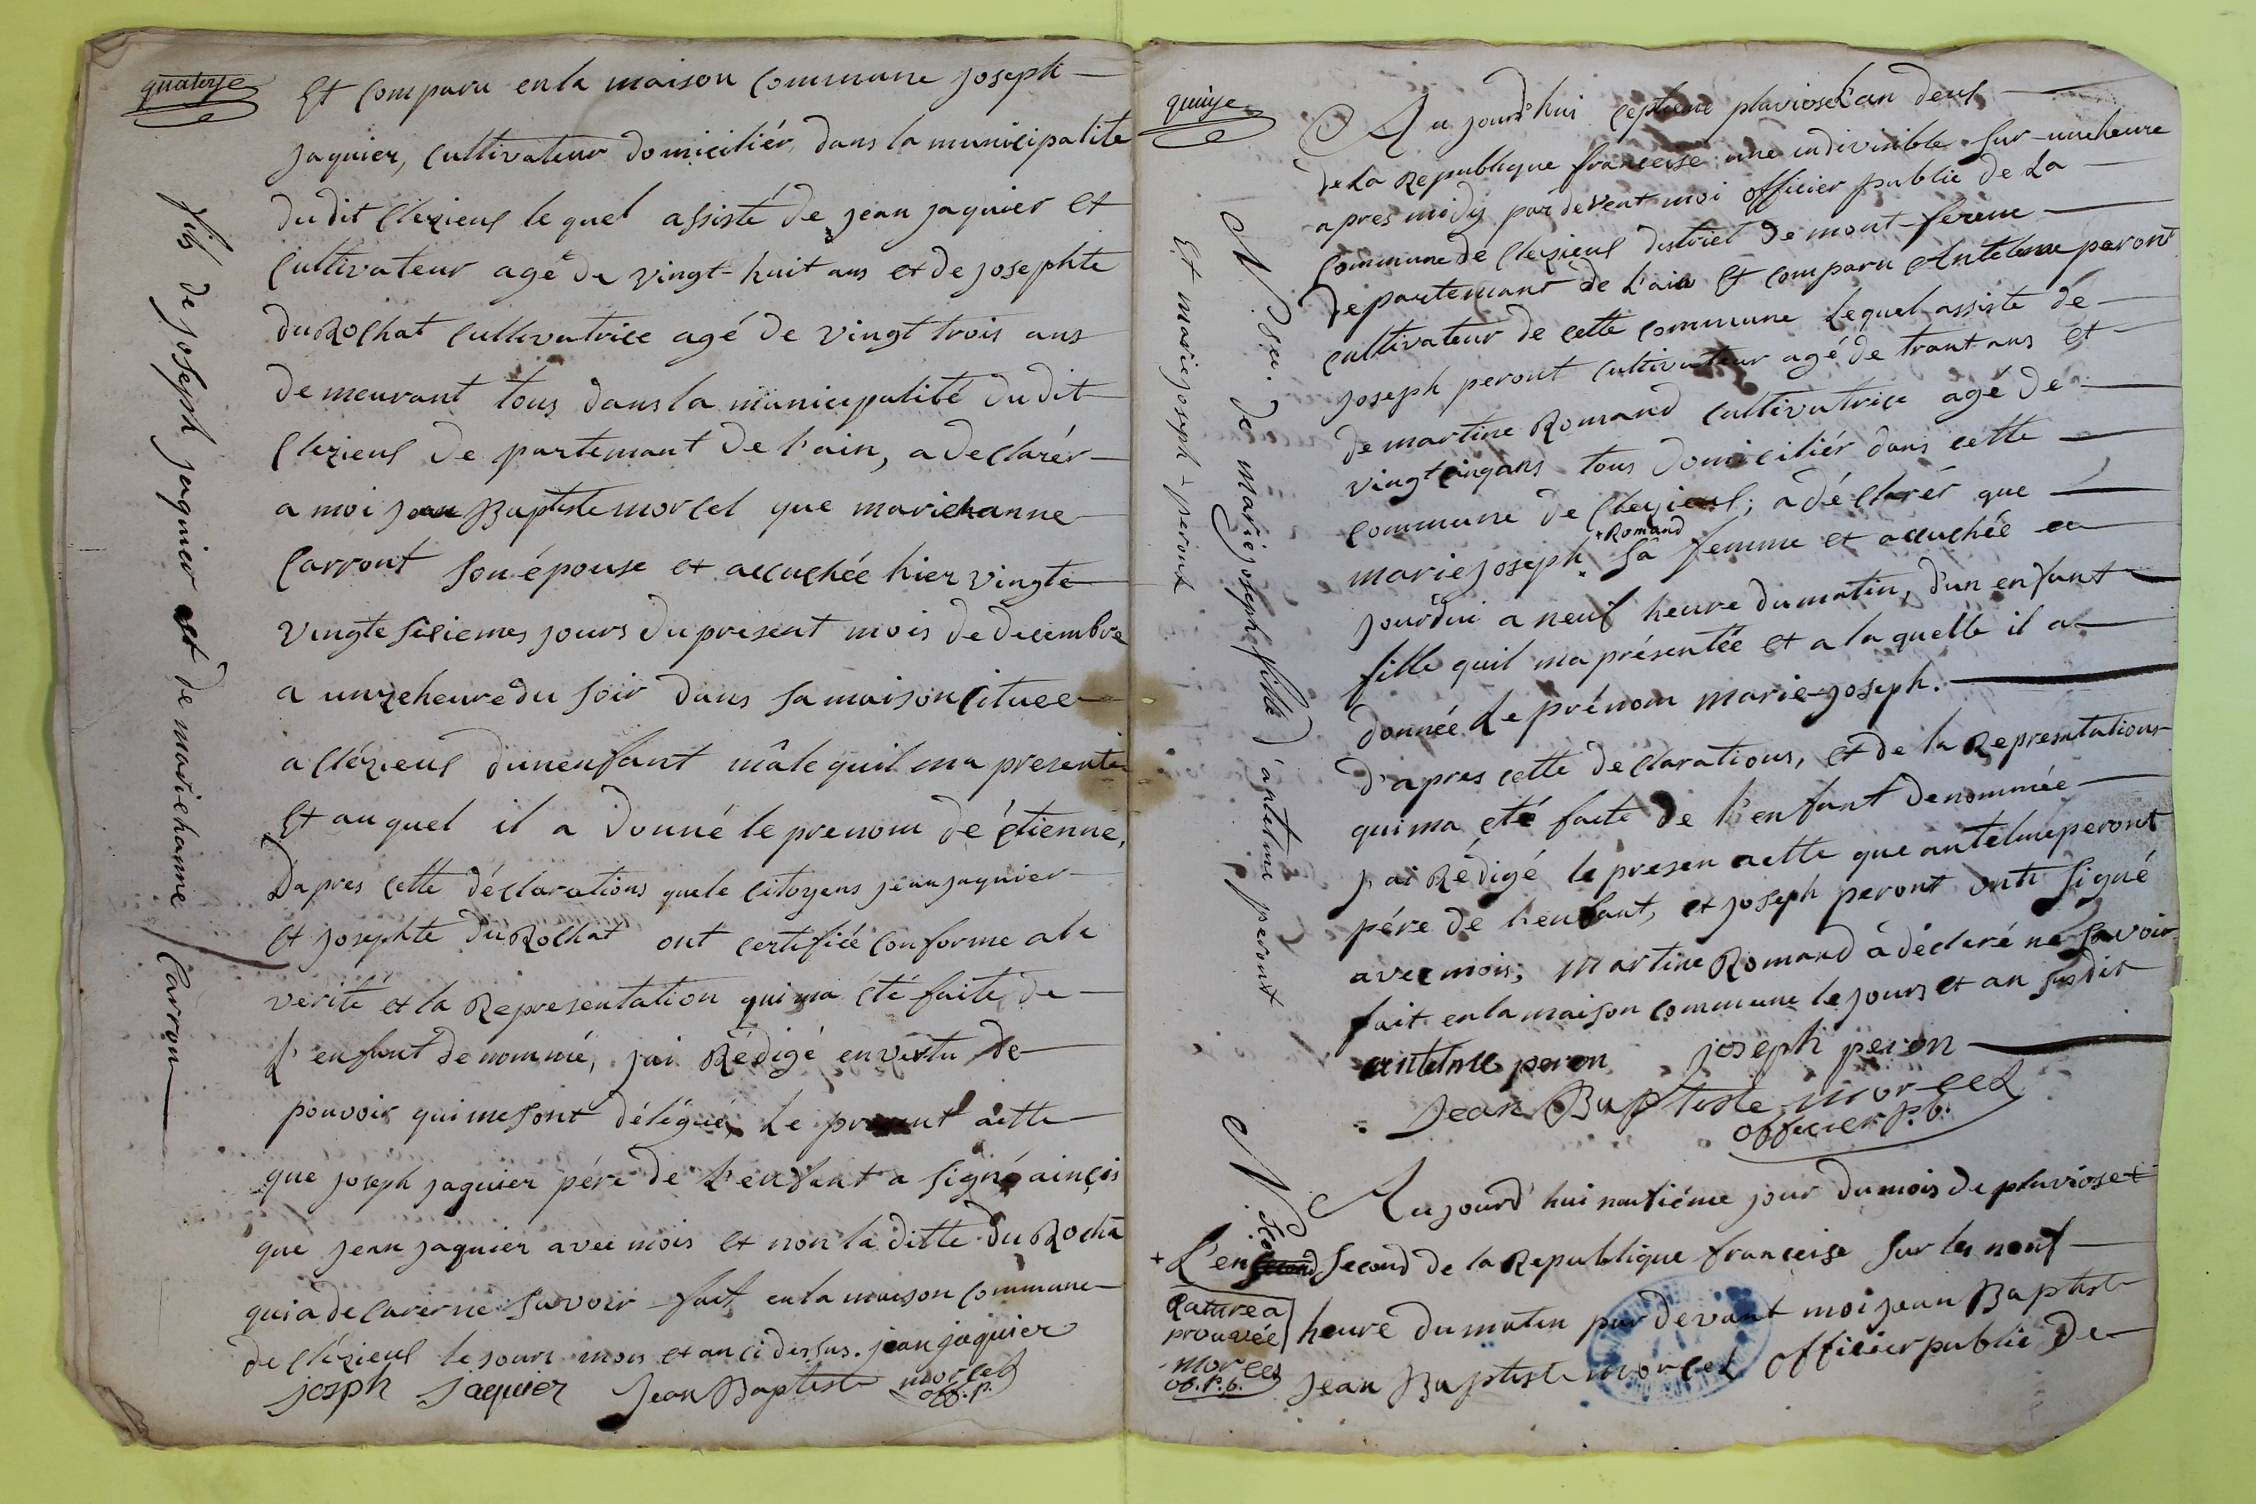 quatorze
Et comparu en la maison commune joseph
jaquier, cultivateur domiciliér dans la municipalite
du dit clezieux le quel assisté de jean jaquier et
cultivateur agé de vingt-huit ans et de josephte
du Rochat cultivatrice agé de vingt trois ans
demeurant tous dans la municipalité du dit
clezieux de partemant de l'ain, a declarér
a moi jean Baptiste morcel que mariehanne
Carront son épouse et accuchée hier vingte
vingte siziemes jours du present mois de decembre
a unze heure du soir dans sa maison cituee
a clézieux dun enfant mâle quil ma presenté
Et au quel il a donné le prenom de étienne,
Dapres cette déclarations que le citoyens jean jaquier
et josephte du Rochat ont certifiée conforme a la
verité et la Representation qui ma été faite, de
L'enfant denommé, jai Rédigé en vertu de
pouvoir qui me sont délégué, Le present actte
que joseph jaquier pére de L'enfant a signé ainçis
que jean jaquier avec mois et non la ditte du Rocha
qui a de clarer ne savoir fait en la maison commune
de clézieux le jours mois et an ci dessus. jean jaquier
joseph jaquier Jean Baptiste morcel
off. p.
fils de joseph jaquier et de mariehanne Carron
quinze
Aujourd'hui septieme pluviose l'an deux
de La Republique francoise une indivisible sur une heure
apres midy par devent moi officier public de La
commune de clezieux district de mont-ferme
departemant de L'ain Et comparu Antelme peront
cultivateur de cette commune Lequel assisté de
joseph peront cultivateur agé de trant ans et
de martine Romand cultivatrice agé de
vingt cinq ans tous domiciliér dans cette
commune de clezieux; a déclarér que
+ Romand
marie joseph sa femme et accuchée au
jourdui a neuf heure du matin, d'un enfant
fille quil ma présentée et a la quelle il a
donnée Le prénom marie-joseph.
d'apres cette declarations, et de la Representations
qui ma été faite de L'enfant denommée
jai Rédigé le presen actte que antelme peront
pére de L'enfant, et joseph peront onte signé
avec mois; martine Romand a déclaré ne savoir
fait en la maison commune le jours et an susdit
antelme peron joseph peron
Jean Baptiste morcel
officier p.b.
N. de marie joseph fille d'antelme peront
Et marie joseph peront
Aujourd'hui nantiéme jour du mois de pluviose +
+ L'en second de la Republique francoise sur les neuf
heure du matin par devant moi jean Baptiste
jean Baptiste morcel officier public de
Rature a
prouvée
morcel
of. p. b.